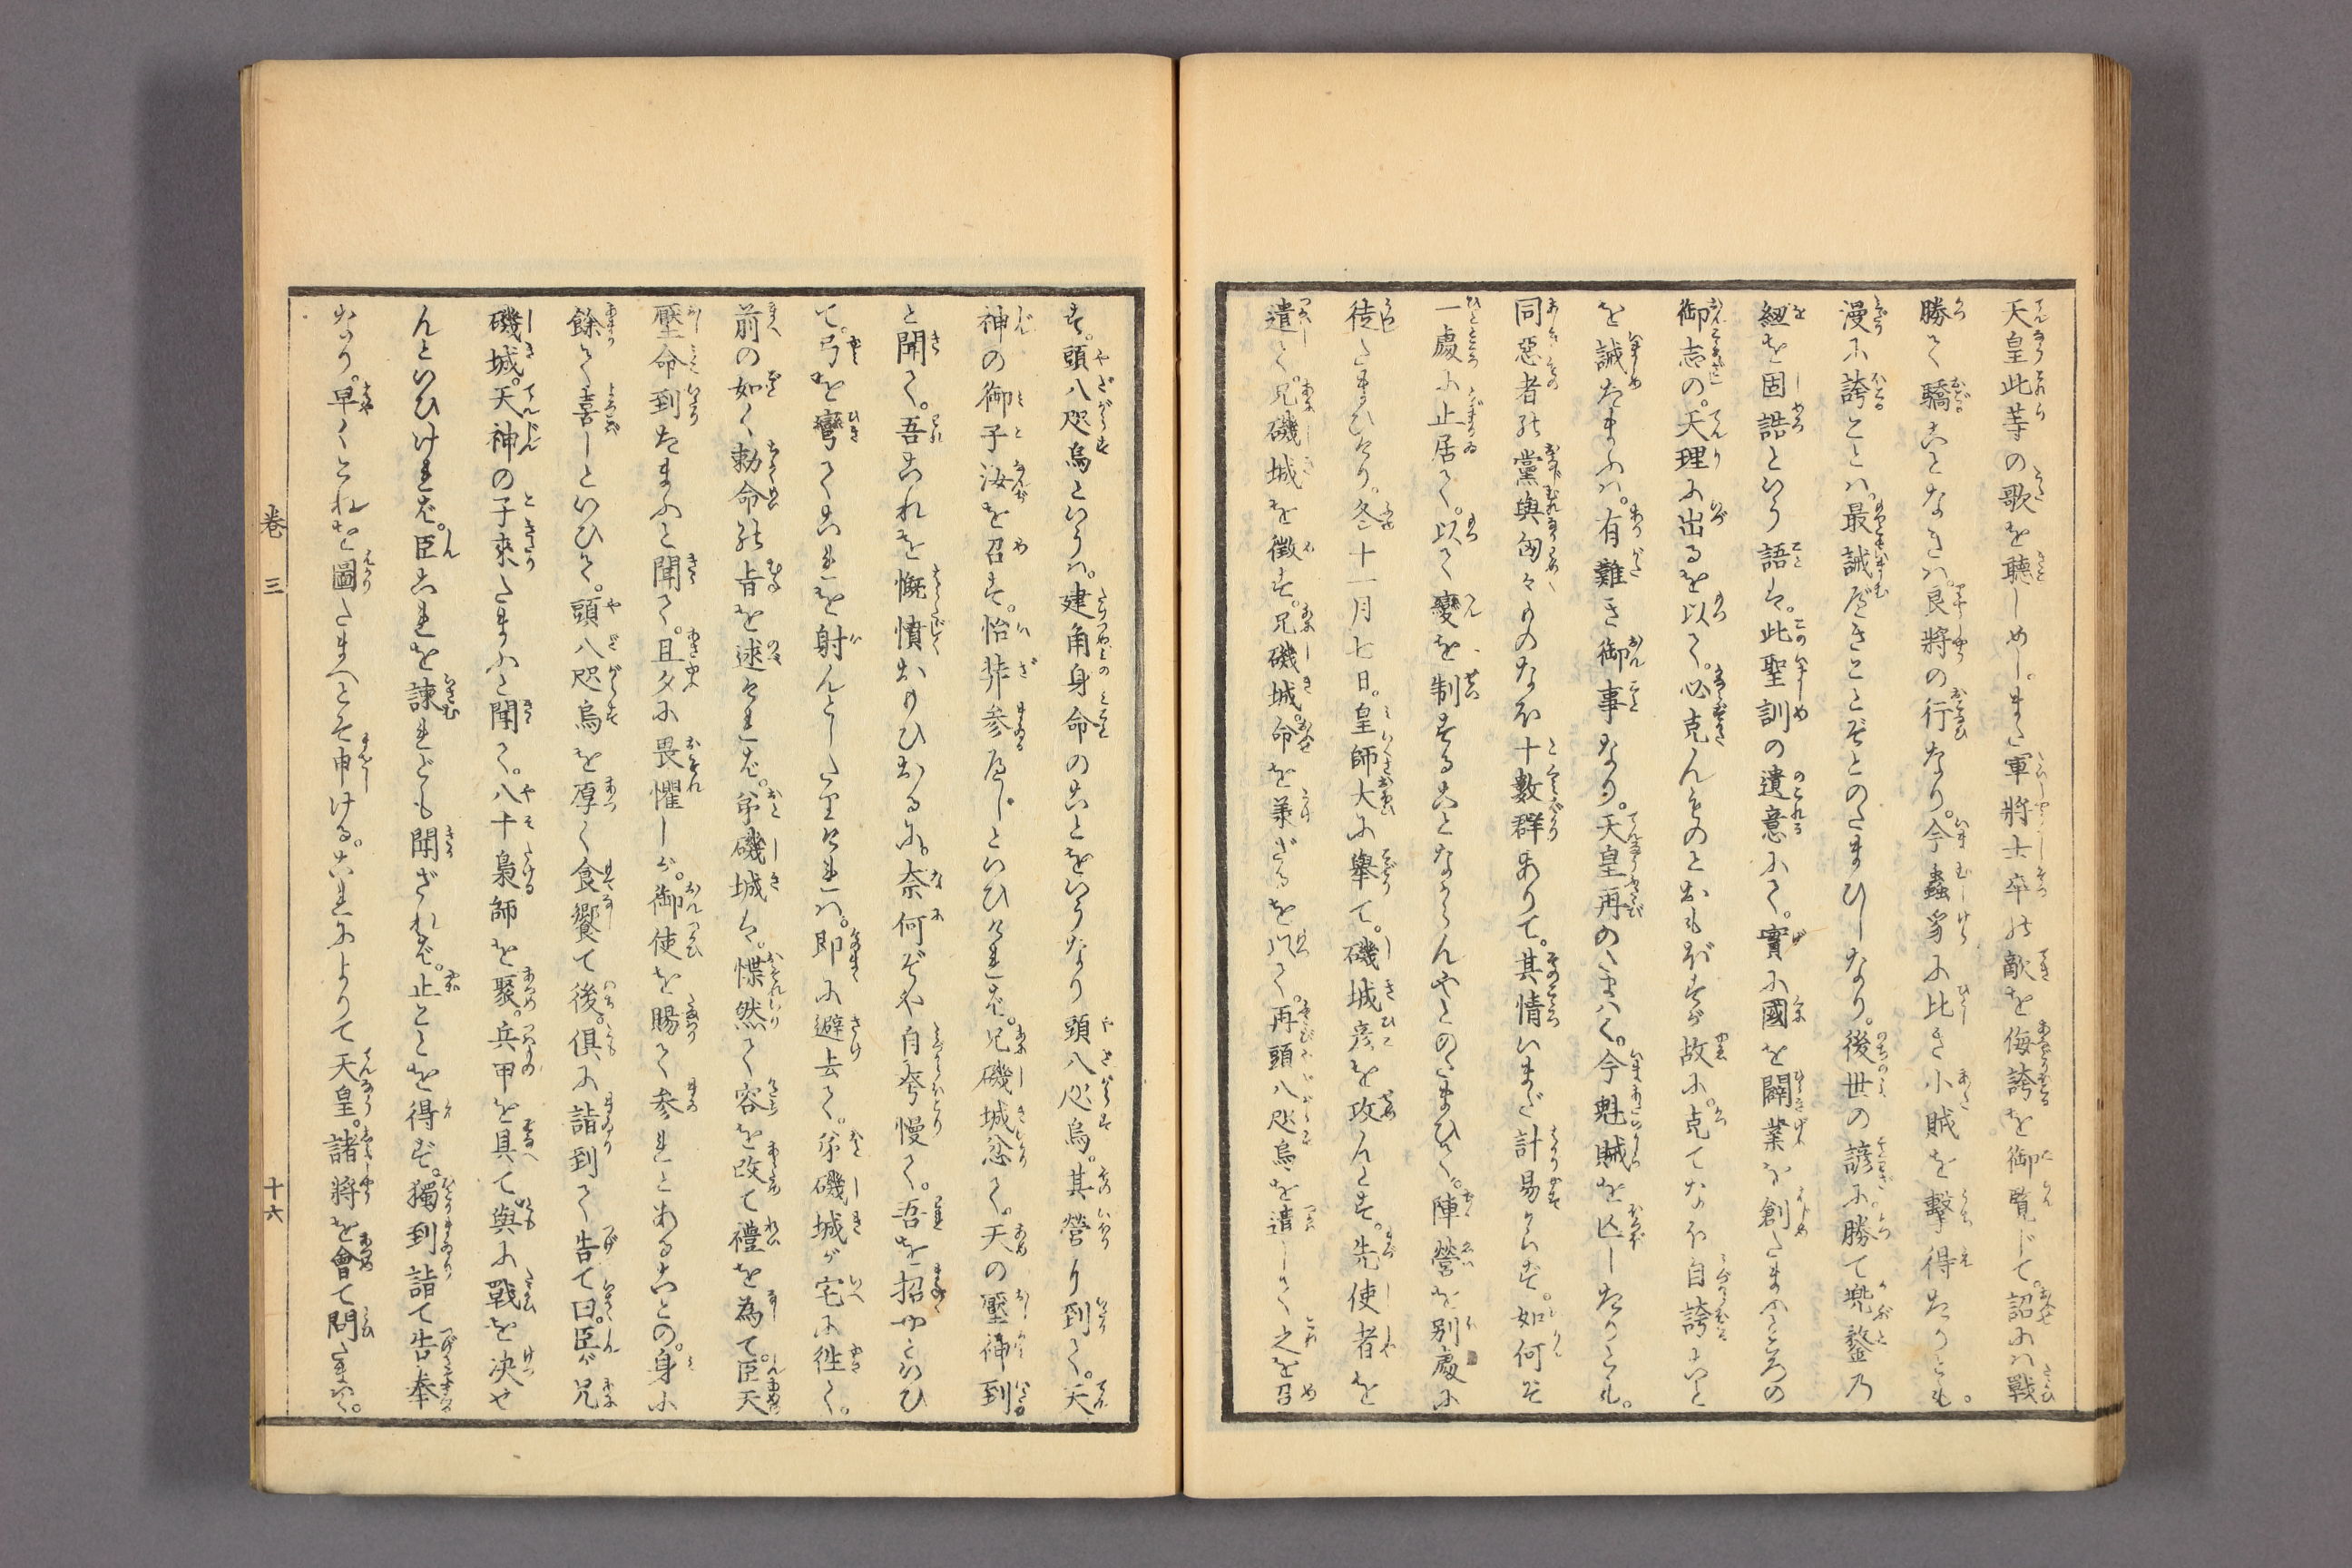 天皇此等の歌を聴しめし。また軍将士卒の敵を侮誇を御覧じて。詔ふハ戦
勝て驕ことなきハ。良将の行なり。今蟲豸に比き小賊を撃得たりとも。
漫に誇ことハ。最誡べきことぞとのたまひしなり。後世の諺に。勝て兜鍪乃
紐を固誥という語は。此聖訓の遺意にて。實に國を闢業を創たまふところの
御志の。天理に出るを以て。必克んものとおもほすが故に。克てなほ自誇こと
を誡たまふハ。有難き御事なり。天皇再のたまハく。今魁賊を亾したりとも。
同惡者の黨與匈々ものなほ十數群ありて。其情いまだ計易からず。如何ぞ
一處に止居て。以て變を制することなからんやとのたまひて。陣營を別處に
徒たまひけり。冬十一月七日。皇師大に擧て。磯城彦を攻んとす。先使者を
遣て。兄磯城を徴す。兄磯城。命を兼ざるを以て。再頭八咫烏を遣して之を召
す。頭八咫烏といふハ。建角身命のことをいうなり頭八咫烏。其營に到て。天
神の御子汝を召す。怡弉参べしといひければ。兄磯城忿て。天の壓神到
と聞て。吾これを慨憤おもひおるに。奈何ぞや自夸慢て。吾を招やといひ
て。弓を彎てこれを射んとしたりければ。即に避去て。弟磯城が宅に徃て。
前の如く勅命の旨を述ければ。弟磯城は。惵然て容を改て禮を為て。臣天
壓命到たまふと聞て。且夕に畏懼しが。御使を賜て参れとあることの。身に
餘て喜しといひて。頭八咫烏を厚く食饗て後。倶に詣到て告て曰。臣が兄
磯城。天神の子來たまふと聞て。八十梟師を聚。兵甲を具て。與に戰を决せ
んといひければ。臣これを諫れども聞ざれば。止ことを得ず。獨到詣て告奉
なり。早くこれを圖たまへとぞ申ける。これによりて天皇。諸將を會て問たまハく。
卷三
十六